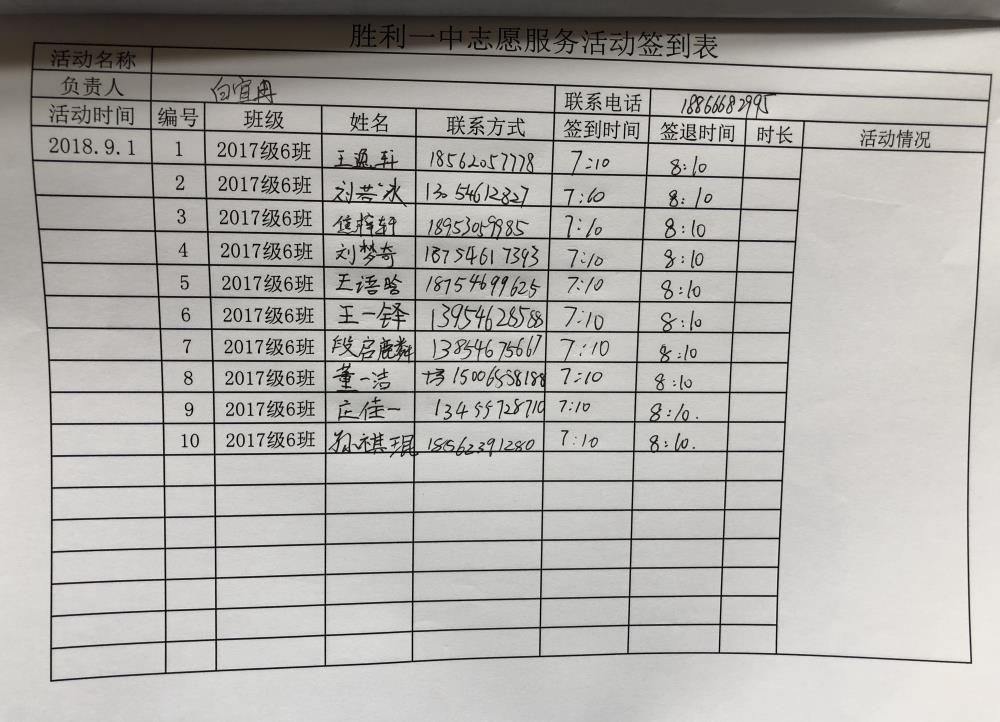 胜利一中志愿服务活动签到表
活动名称
负责人 白宜冉 联系电话 18866682995
活动时间 编号 班级 姓名 联系方式 签到时间 签退时间 时长 活动情况
2018.9.1 1 2017级6班 王逸轩 18562057778 7:10 8:10
2 2017级6班 刘芸冰 13054612827 7:10 8:10
3 2017级6班 焦梓轩 18953059985 7:10 8:10
4 2017级6班 刘梦奇 18754617393 7:10 8:10
5 2017级6班 王语晗 18754699625 7:10 8:10
6 2017级6班 王一铎 13954628588 7:10 8:10
7 2017级6班 段启麟 13854675667 7:10 8:10
8 2017级6班 董一洁 15006558188 7:10 8:10
9 2017级6班 庄佳一 13455728710 7:10 8:10.
10 2017级6班 孙祺琨 18562391280 7:10 8:10.